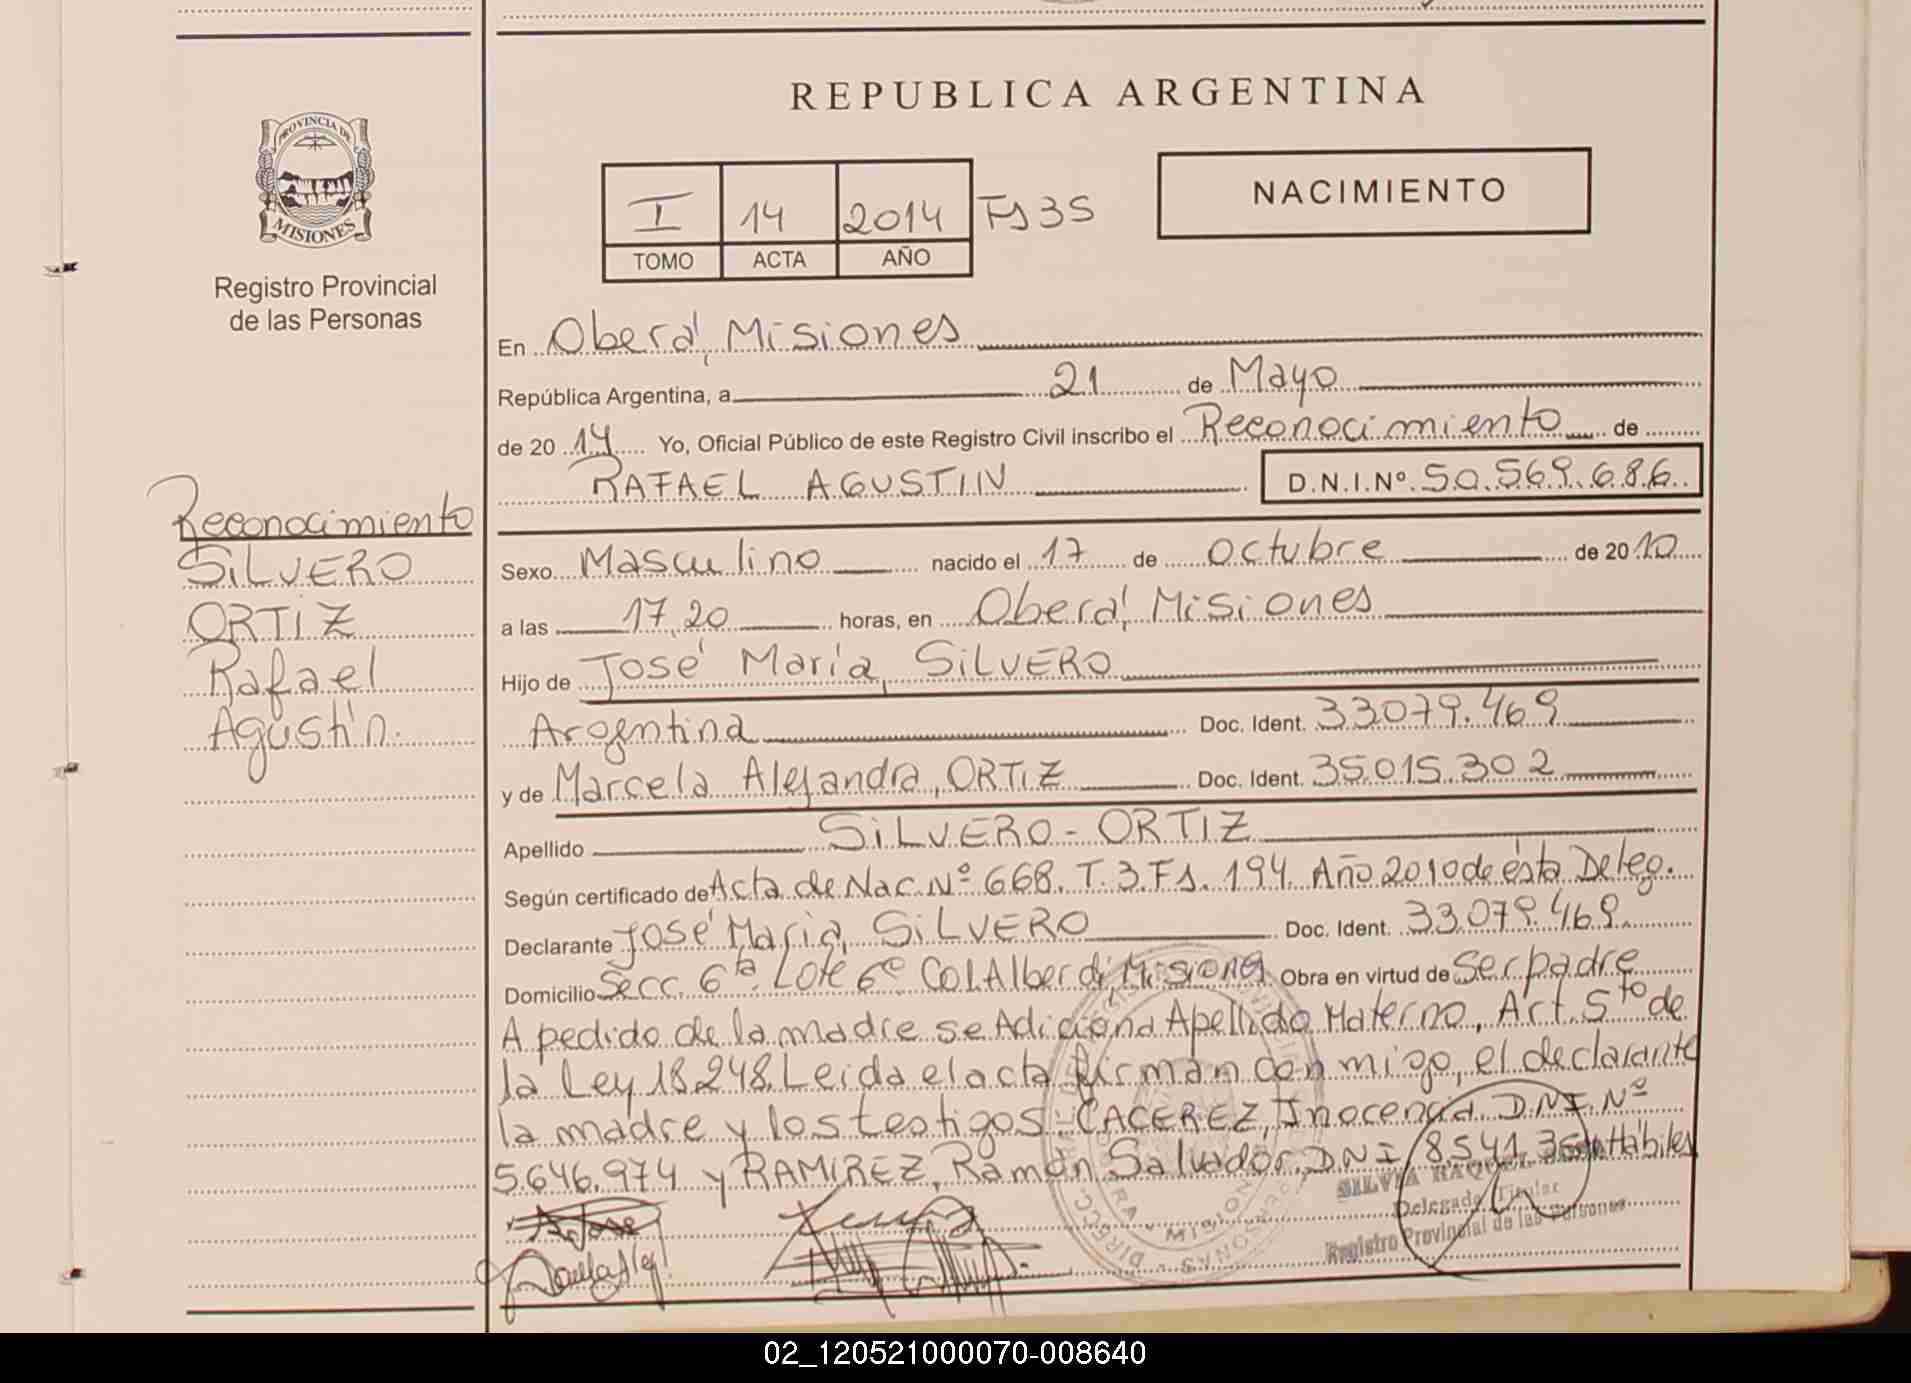 REPUBLICA ARGENTINA
PROVINCIA DE
MISIONES
Registro Provincial
de las Personas
I 14 2014 Fs 35
TOMO ACTA AÑO
NACIMIENTO
En Oberá, Misiones
República Argentina, a 21 de Mayo
de 2014 Yo, Oficial Público de este Registro Civil inscribo el Reconocimiento de
RAFAEL AGUSTIN D.N.I.Nº 50.569.686
Reconocimiento
SILVERO
ORTIZ
Rafael
Agustín.
Sexo Masculino nacido el 17 de octubre de 2010
a las 17,20 horas, en Oberá, Misiones
Hijo de José María, SILVERO
Argentina Doc. Ident. 33079.469
y de Marcela Alejandra, ORTIZ Doc. Ident. 35.015.302
Apellido SILVERO - ORTIZ
Según certificado de Acta de Nac. Nº 668. T. 3. Fs. 194. Año 2010 de ésta Deleg.
Declarante José María, SILVERO Doc. Ident. 33.079.469
Domicilio Secc. 6ta. Lote 6º Col Alberdi, Misiones Obra en virtud de Ser padre
A pedido de la madre se Adiciona Apellido Materno, Art. 5to de
la Ley 18.248. Leida el acta firman con migo, el declarante
la madre y los testigos: CACEREZ, Inocencia D.N.I. Nº
5.646.974 y RAMIREZ, Ramón Salvador. DNI 8.541. Hábiles
SILVIA RAQUEL
Delegada Titular
Registro Provincial de las Personas
02_120521000070-008640